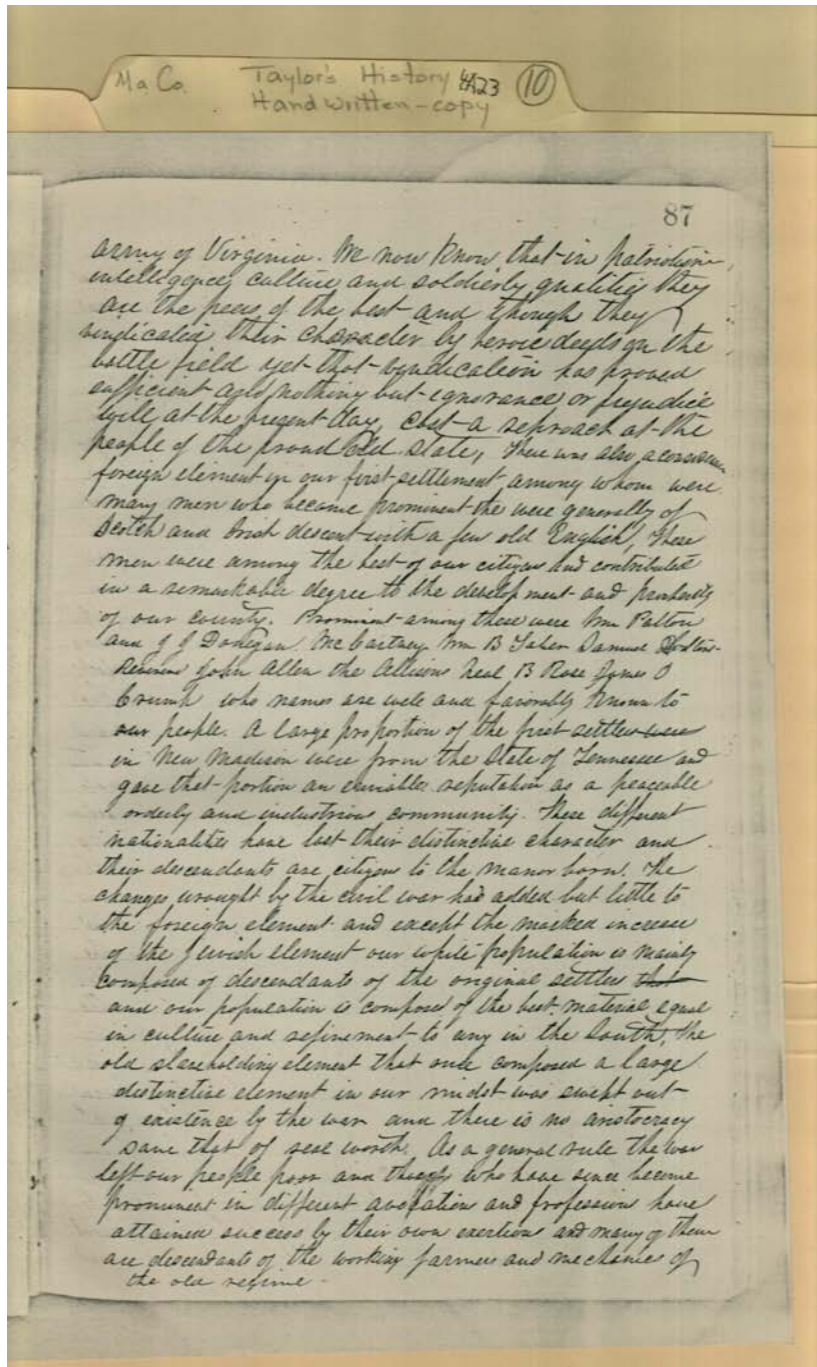 Ma. Co. Taylor's History 4A23 (10)
Handwritten-copy
87
army of Virginia. We now know, that in patriotism,
intelligence, culture and soldierly qualities they
are the peers of the best and though they
vindicated their character by heroic deeds on the
battle field yet that vindication has proved
sufficient and nothing but ignorance or prejudice
will at the present day, cast a reproach at the
people of the proud old state, There was also a
foreign element in our first settlement, among whom were
many men who became prominent the were generally of
Scotch and Irish descent with a few old English, These
men were among the best of our citizens and contributed
in a remarkable degree to the development and prosperity
of our county. Prominent among these were Wm Patton
and J J Donegan. McCartney Wm B Samuel
Reverend John Allen the Allisons Neal B Rose James O
Crump who names are well and favorably known to
our people. A large proportion of the first settlers were
in New Madison were from the State of Tennessee and
gave that portion an enviable reputation as a peaceable
orderly and industrious community. These different
nationalities have lost their distinctive character and
their descendants are citizens to the manor born. The
changes wrought by the civil war had added but little to
the foreign element and except the marked increase
of the Jewish element our white population is mainly
composed of descendants of the original settlers that
and our population is composed of the best material equal
in culture and refinement to any in the South, The
old slaveholding element that once composed a large
distinctive element in our midst was swept out
of existence by the war and there is no aristocracy
save that of real worth. As a general rule the war
left our people poor and who have since become
prominent in different avocation and profession have
attained success by their own exertions and many of them
are descendants of the working farmers and mechanics of
the old regime.